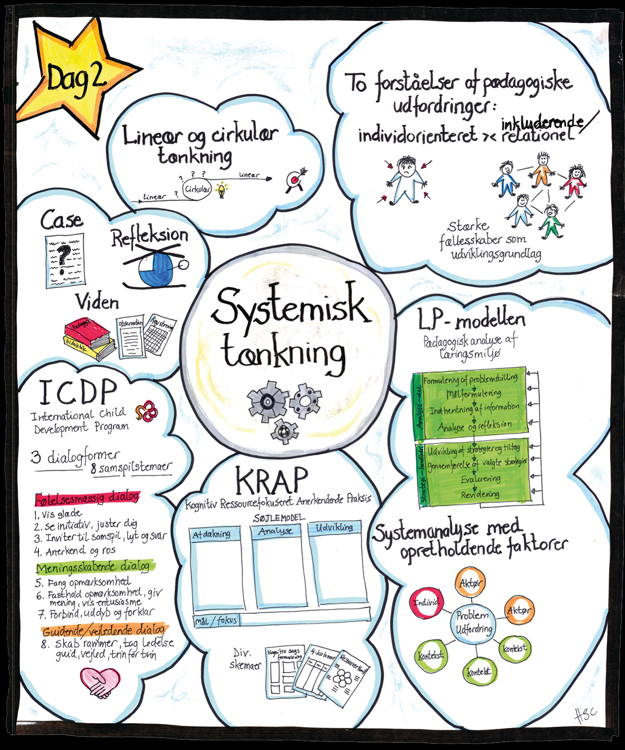 Dag 2
Lineær og cirkulær
tænkning
Lineær
? ? ?
Cirkulær
Lineær
To forståelser af pædagogiske
udfordringer:
inkluderende/
individorienteret >< relationel
Stærke
fællesskaber som
udviklingsgrundlag
Case
?
Refleksion
Viden
Didaktik
Observation
Systemisk
tænkning
LP-modellen
Pædagogisk analyse af
læringsmiljø
Formulering af problemstilling
Målformulering
Indhentning af information
Analyse og refleksion
Udvikling af strategier og tiltag
Gennemførelse af valgte strategier
Evaluering
Revidering
ICDP
International Child
Development Program
3 dialogformer
8 samspilstemaer
Følelsesmæssig dialog
1. Vis glæde
2. Se initiativ, juster dig
3. Inviter til samspil, lyt og svar
4. Anerkend og ros
Meningsskabende dialog
5. Fang opmærksomhed
6. Fasthold opmærksomhed, giv
mening, vis entusiasme
7. Forbind, uddyb og forklar
Guidende/vejledende dialog
8. Skab rammer, tag ledelse
guid, vejled, trin for trin
KRAP
Kognitiv Ressourcefokuseret Anerkendende Praksis
SØJLEMODEL
Afdækning
Analyse
Udvikling
Mål / fokus
Div.
skemaer
Systemanalyse med
opretholdende faktorer
Aktør
Individ
Aktør
Problem
Udfordring
Kontekst
Kontekst
Kontekst
HSC